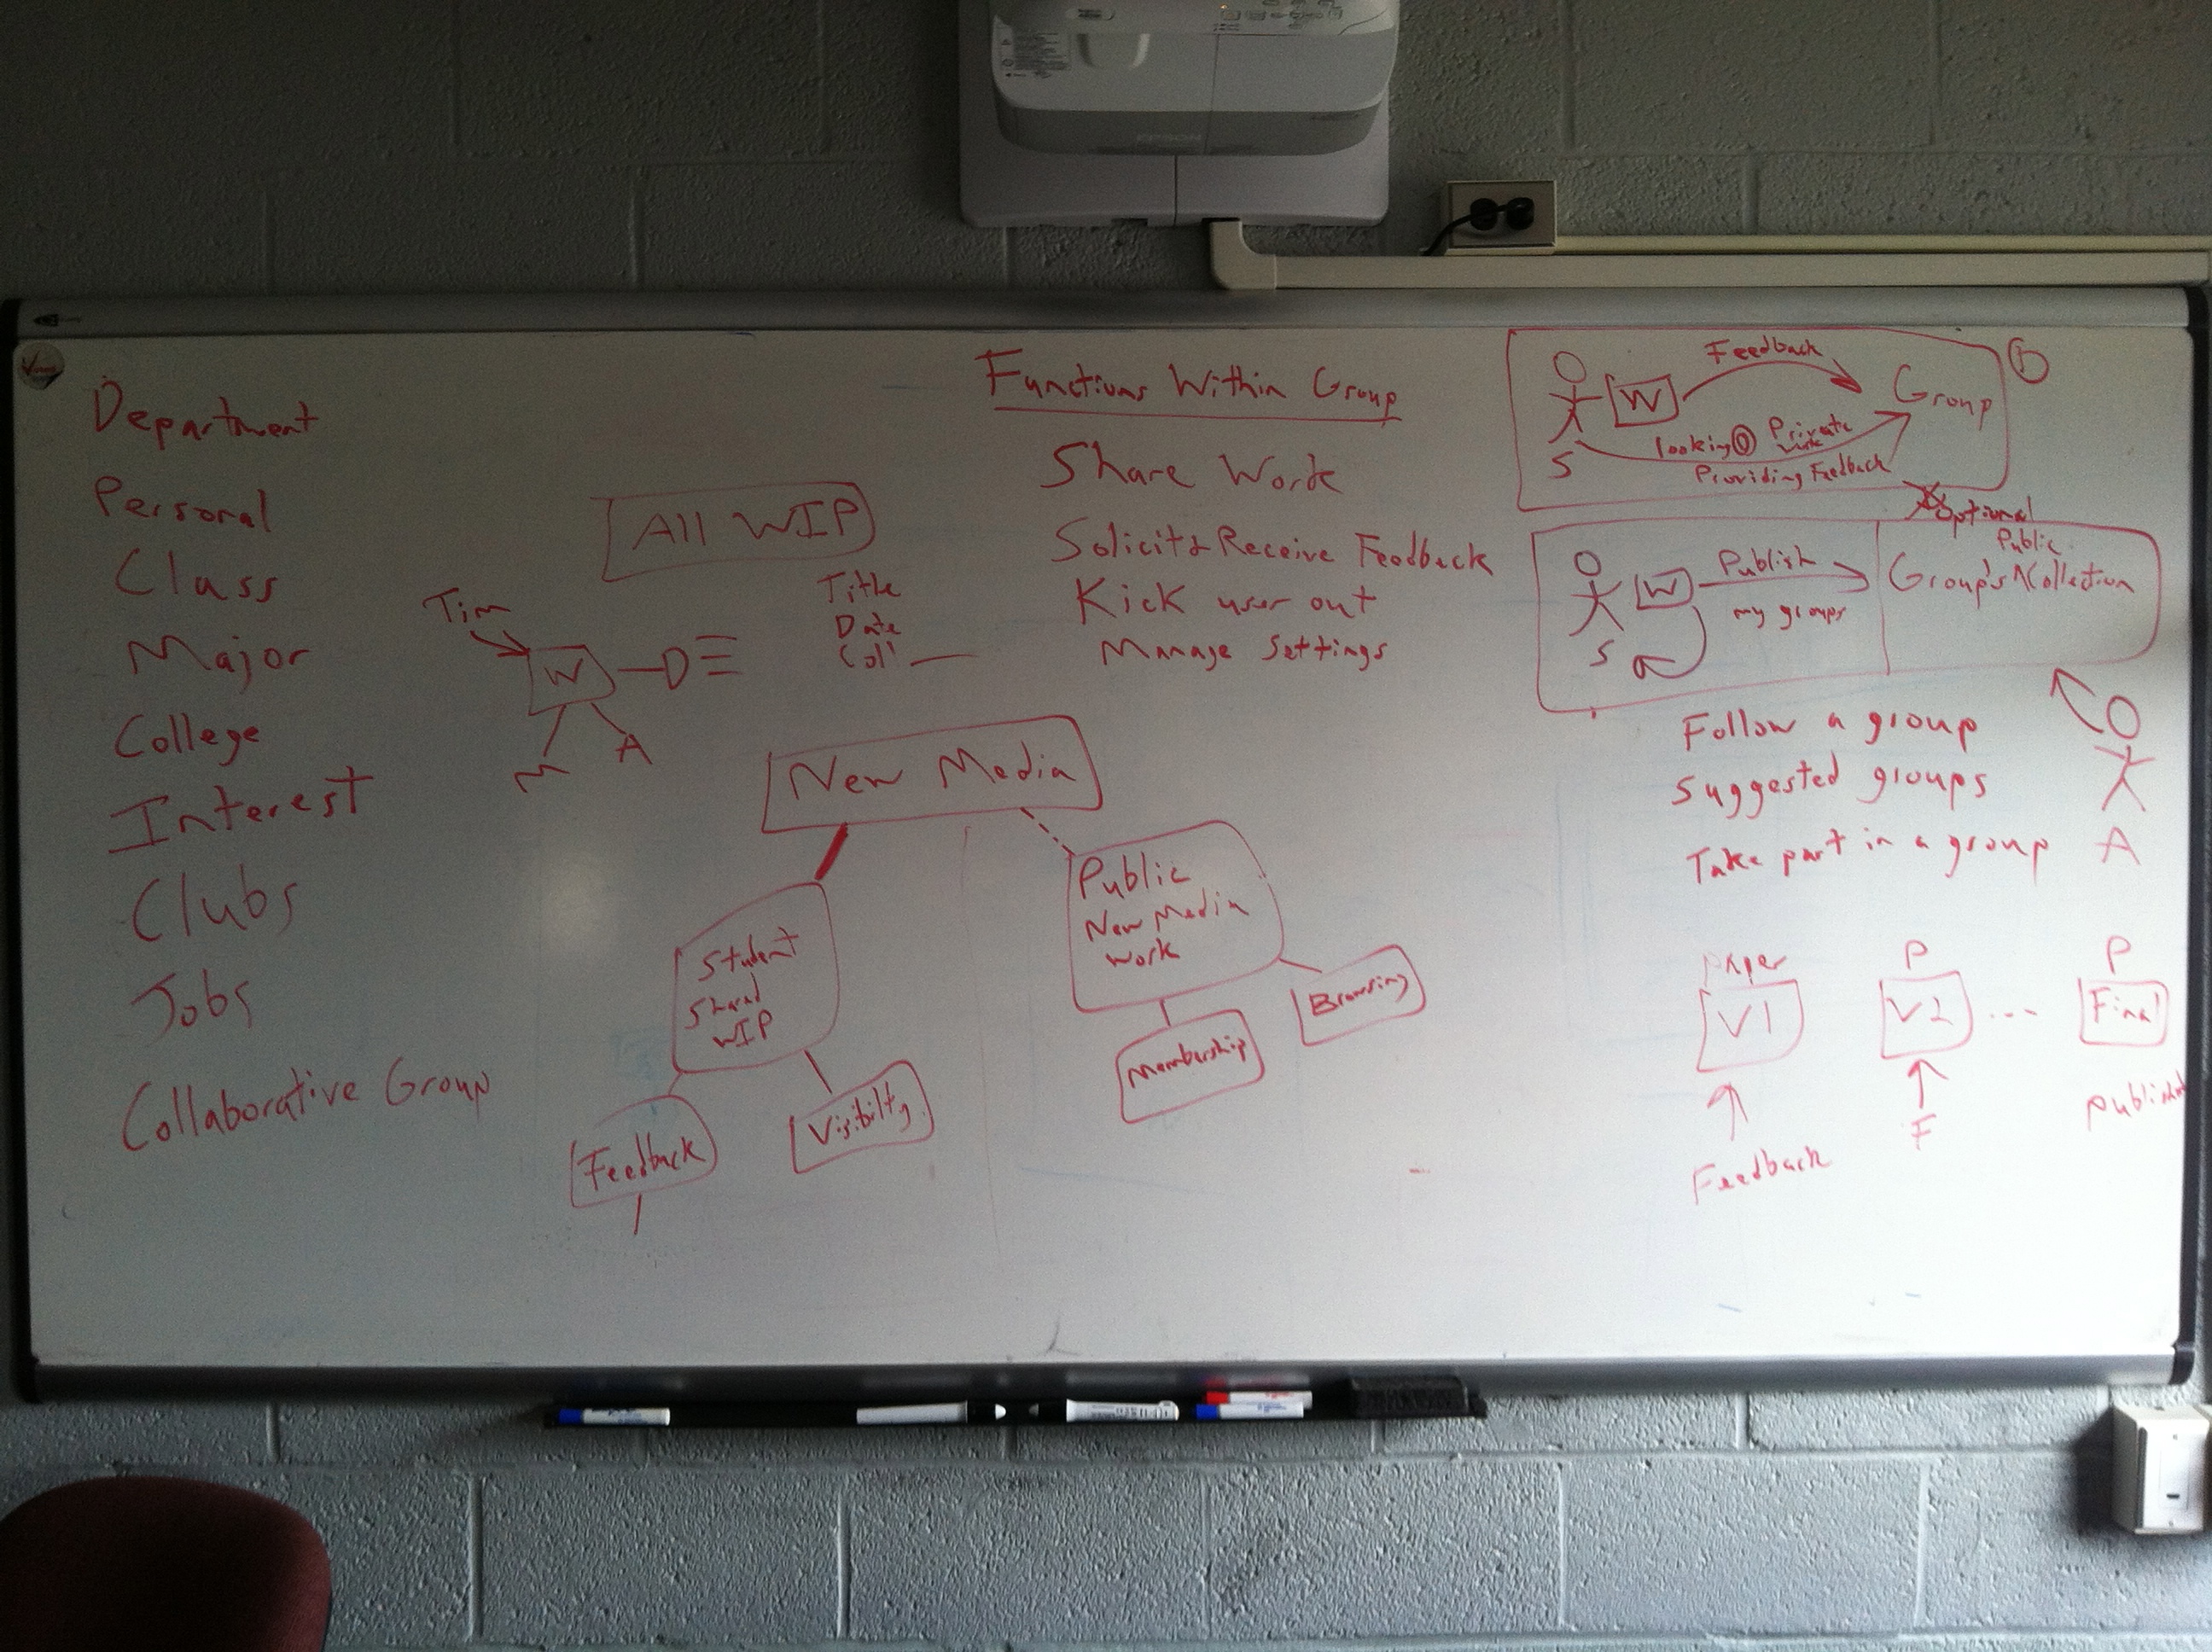 EPSON
Department
Personal
Class
Major
College
Interest
Clubs
Jobs
Collaborative Group
All WIP
Tim
W
D
M
A
Title
Date
Col'
New Media
Student
Shared
WIP
Feedback
Visibilty
Public
New Media
Work
Membership
Browsing
Functions Within Group
Share Work
Solicit & Receive Feedback
Kick user out
Manage Settings
Feedback
W
Group
looking @ Private
Work
Providing Feedback
S
Optional
Publish
W
my groups
S
Public
Group's ^ Collection
Follow a group
Suggested groups
Take part in a group
A
Paper
V1
Feedback
P
V2
F
...
P
Final
Publish